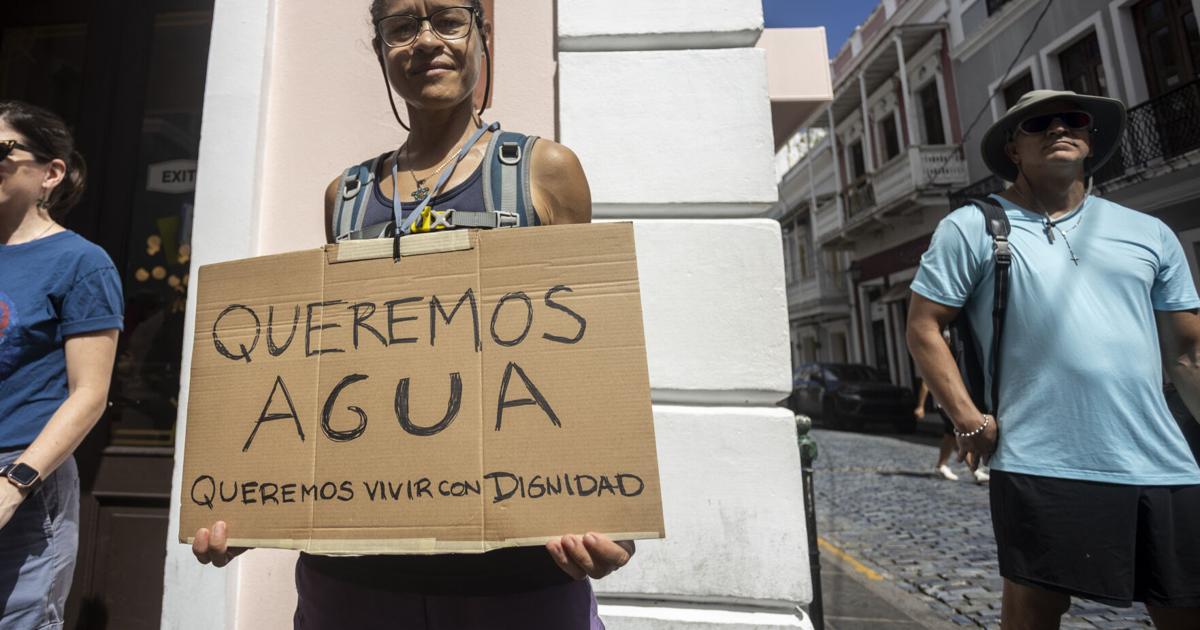 EXIT
QUEREMOS
AGUA
QUEREMOS VIVIR CON DIGNIDAD